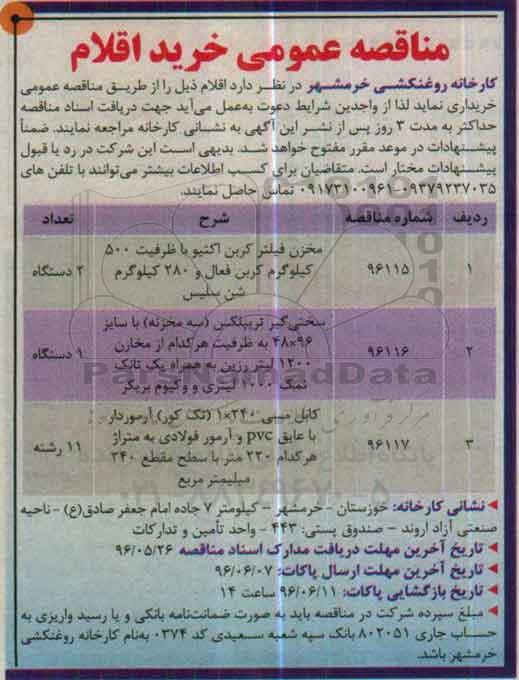 مناقصه عمومی خرید اقلام
کارخانه روغنکشی خرمشهر در نظر دارد اقلام ذیل را از طریق مناقصه عمومی
خریداری نماید لذا از واجدین شرایط دعوت به‌عمل می‌آید جهت دریافت اسناد مناقصه
حداکثر به مدت ۳ روز پس از نشر این آگهی به نشانی کارخانه مراجعه نمایند. ضمناً
پیشنهادات در موعد مقرر مفتوح خواهد شد. بدیهی است این شرکت در رد یا قبول
پیشنهادات مختار است. متقاضیان برای کسب اطلاعات بیشتر می‌توانند با تلفن های
۰۹۳۷۹۲۳۷۰۳۵-۰۹۱۷۳۱۰۰۹۶۱ تماس حاصل نمایند.
ردیف شماره مناقصه شرح تعداد
مخزن فیلتر کربن اکتیو با ظرفیت ۵۰۰
۱ ۹۶۱۱۵ کیلوگرم کربن فعال و ۲۸۰ کیلوگرم ۲ دستگاه
شن سلیس
سختی‌گیر تریپلکس (سه مخزنه) با سایز
۴۸×۹۶ به ظرفیت هرکدام از مخازن
۲ ۹۶۱۱۶ ۱۲۰۰ لیتر رزین به همراه یک تانک ۱ دستگاه
نمک ۱۰۰۰ لیتری و وکیوم بریگر
کابل مسی ۲۴۰×۱ (تک کور) آرموردار
با عایق pvc و آرمور فولادی به متراژ
۳ ۹۶۱۱۷ هرکدام ۲۲۰ متر با سطح مقطع ۲۴۰ ۱۱ رشته
میلیمتر مربع
نشانی کارخانه: خوزستان - خرمشهر - کیلومتر ۷ جاده امام جعفر صادق(ع) - ناحیه
صنعتی آزاد اروند - صندوق پستی: ۴۴۳ - واحد تأمین و تدارکات
تاریخ آخرین مهلت دریافت مدارک اسناد مناقصه ۹۶/۰۵/۲۶
تاریخ آخرین مهلت ارسال پاکات: ۹۶/۰۶/۰۷
تاریخ بازگشایی پاکات: ۹۶/۰۶/۱۱ ساعت ۱۴
مبلغ سپرده شرکت در مناقصه باید به صورت ضمانت‌نامه بانکی و یا رسید واریزی به
حساب جاری ۸۰۲۰۵۱ بانک سپه شعبه سعیدی کد ۰۳۷۴ به‌نام کارخانه روغنکشی
خرمشهر باشد.
ParsNamadData